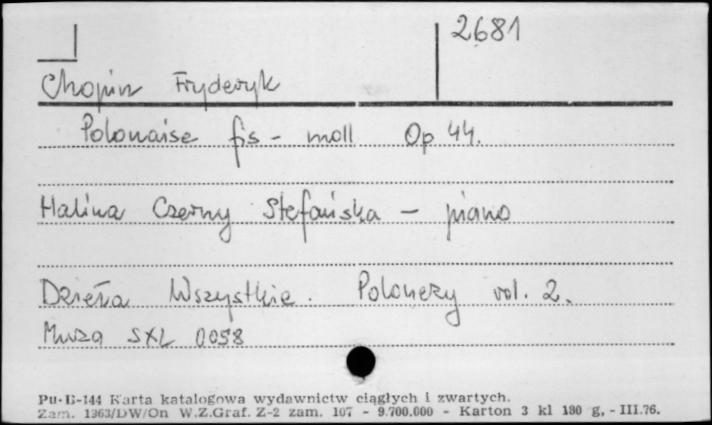 2681
Chopin Fryderyk
Polonaise fis - moll Op 44.
Halina Czerny Stefańska - piano
Dzieła Wszystkie. Polonezy vol. 2.
Muza SXL 0058
Pu-B-144 Karta katalogowa wydawnictw ciągłych i zwartych.
Zam. 1363/DW/On W.Z.Graf. Z-2 zam. 107 - 9.700.000 - Karton 3 kl 180 g, - III.76.